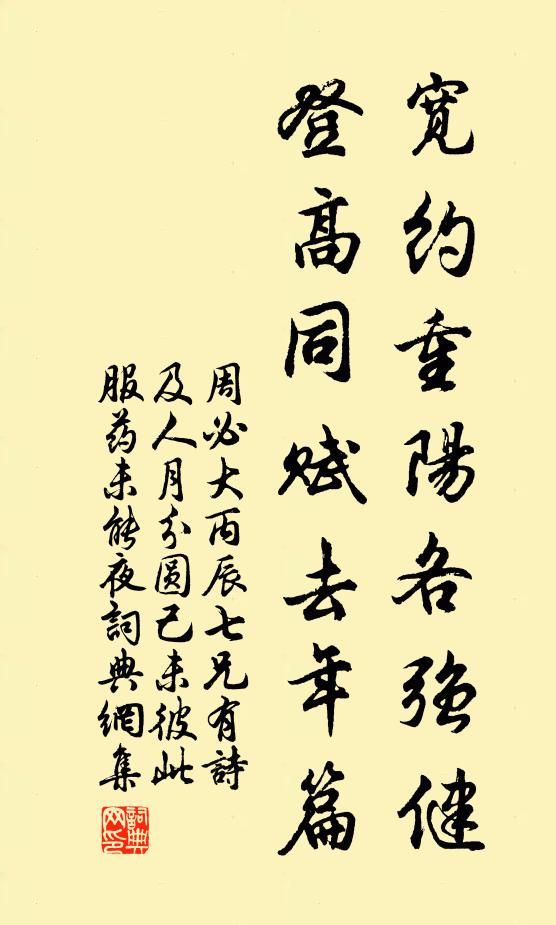 宽约重陽各强健
登高同赋去年篇
周必大丙辰七兄有詩
及人月分圆己未彼此
服药未能夜詞典網集
詞典网印